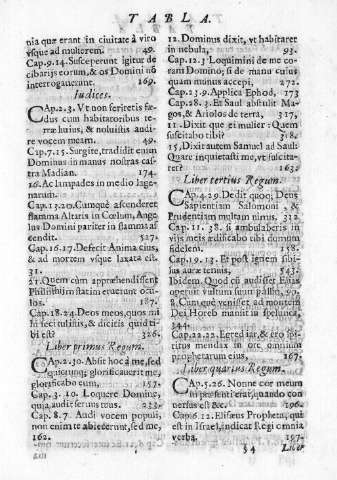 TABLA.
nia quæ erant in ciuitate à viro
vsque ad mulierem. 49.
Cap.9.14. Susceperunt igitur de
cibarijs eorum, & os Domini nō
interrogauerunt. 269.
Iudices.
CAp.2.3. Vt non feriretis fœ-
dus cum habitatoribus
terræ huius, & noluistis audi-
re vocem meam. 49.
Cap.7.15. Surgite, tradidit enim
Dominus in manus nostras cas-
tra Madian. 174.
16. Ac lampades in medio lage-
narum.
Cap.13.20. Cumquè ascenderet
flamma Altaris in Cœlum, Ange
lus Domini pariter in flamma as
cendit. 527.
Cap.16.17. Defecit Anima eius,
& ad mortem vsque laxata est.
31.
21. Quem cùm appræhendissent
Philisthijm statim eruerunt ocu
los. 187.
Cap.18.24. Deos meos, quos mi
hi feci tulistis, & dicitis quid ti-
bi est? 326
Liber primus Regum.
CAp.2.30. Absit hoc à me, sed
quicunq; glorificauerit me,
glorificabo eum, 157.
Cap.3.10. Loquere Domine,
quia audit seruus tuus. 233.
Cap.8.7. Audi vocem populi,
non enim te abiecerunt, sed me,
162.
12. Dominus dixit, vt habitaret
in nebula, 93.
Cap.12.3 Loquimini de me co-
ram Domino, si de manu cuius
quam munus accepi. 272.
Cap.23.9. Applica Ephod, 173
Cap.28.3. Et Saul abstulit Ma-
gos, & Ariolos de terra, 317,
11. Dixit que ei mulier: Quem
suscitabo tibi? 318.
15, Dixit autem Samuel ad Saul:
Quare inquietasti me, vt suscita-
rer? 163.
Liber tertius Regum.
CAp.4.29. Dedit quoq; Deus
Sapientiam Salomoni &
Prudentiam multam nimis. 312
Cap.11.38. si ambulaberis in
vijs meis ædificabo tibi domum
fidelem. 158.
Cap.19.12. Et post ignem sibi-
lus auræ tenuis, 543.
Ibidem. Quod cū audisset Elias
operuit vultum suum pallio, 99.
8. Cum què venisset ad montem
Dei Horeb mansit in spelunca,
344.
Cap.22.22. Egrediar, & ero spi-
ritus mendax in ore omnium
prophetarum eius, 167.
Liber quartus Regum.
CAp.5.26. Nonne cor meum
in præsenti erat, quando con
uersus est &c. 196.
Cap.6.12. Elisæus Propheta, qui
est in Israel, indicat Regi omnia
verba. 197.
§4 Liber